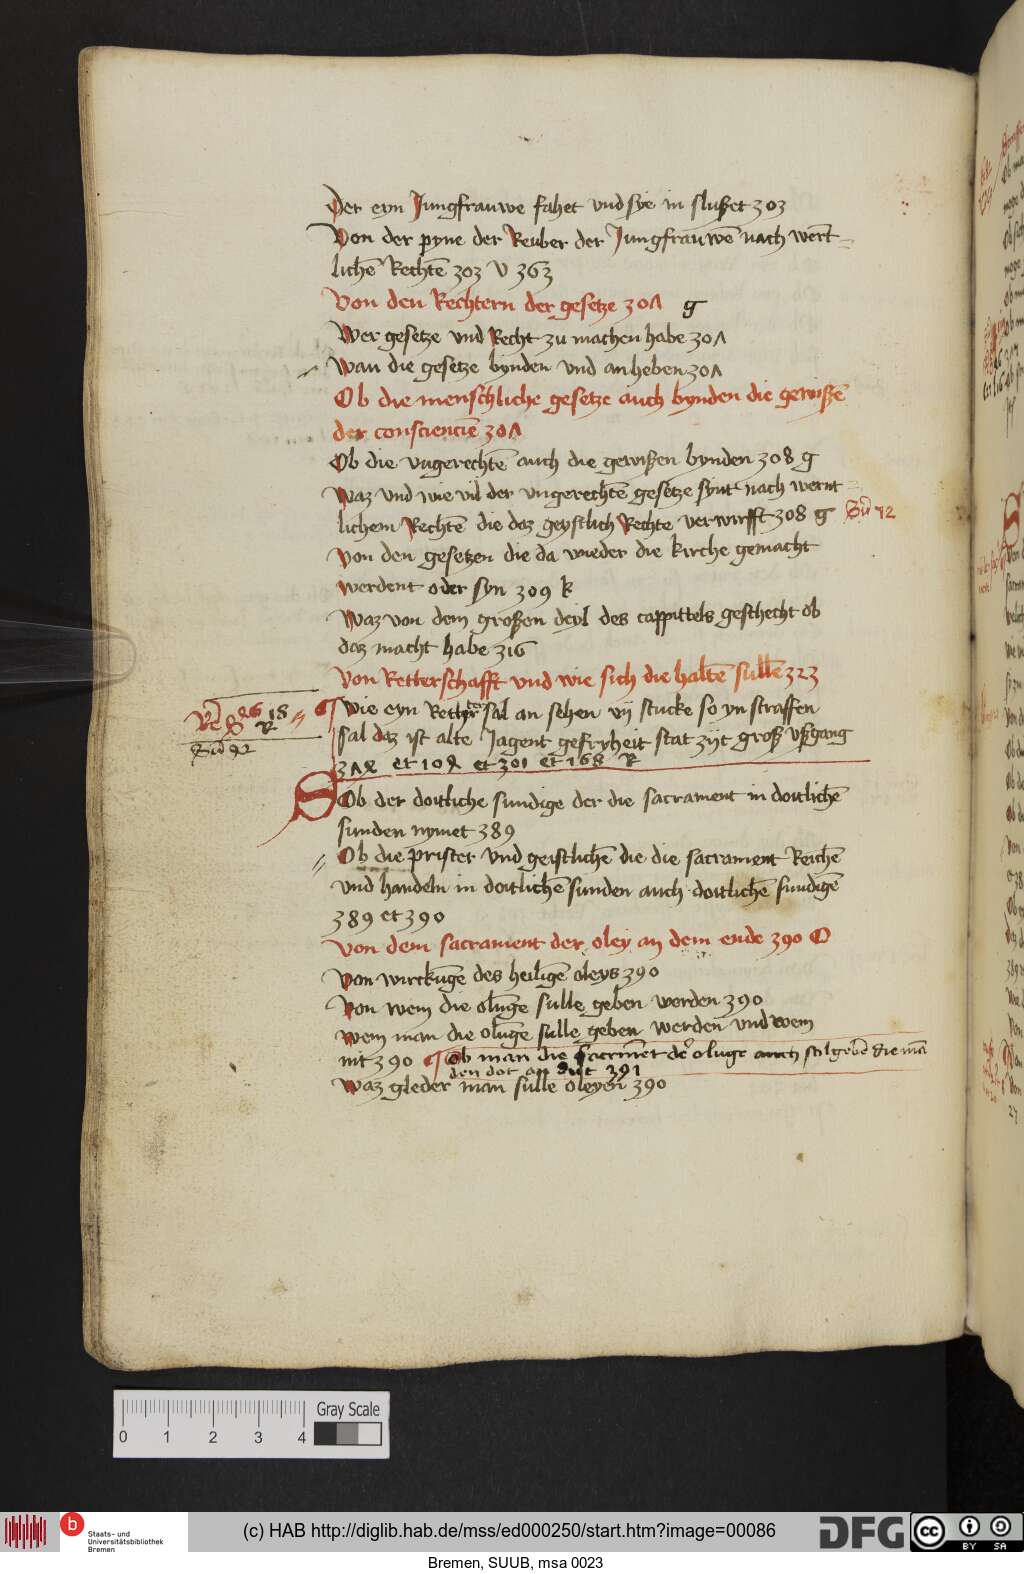 Der eyn Jungfrauwe fahet und sye in slußet 303
Von der pyne der Reuber der Jungfrauwē nach wert-
lichē Rechtē 303 v 363
Von den Rechtern der gesetze 307 g
Wer gesetze und Recht zu machen habe 307
Wan die gesetze bynden und an heben 307
Ob die menschliche gesetze auch bynden die gewißē
der consciencië 307
Ob die ungerechtē auch die gewißen bynden 308 g
Waz und wie vil der ungerechtē gesetze synt nach wernt
lichem Rechtē die daz geystlich Rechte verwirfft 308 g
Von den gesetzen die da wieder die kirche gemacht
werdent oder syn 309 k
Waz von dem großen deyl des cappittels geschecht ob
daz macht habe 316
Von Retterschafft und wie sich die haltē sullē 323
Wie eyn Retter sal an sehen vij stucke so yn straffen
sal daz ist alte Jagent gefryheit stat zijt groß ußgang
et 301 et 168 R
Ob der doitliche sundige der die sacrament in doitlichē
sunden nymet 389
Ob die prister und geistlichē die die sacrament Reichē
und handeln in doitlichē sunden auch doitlichē sundigē
389 et 390
Von dem sacrament der oley an dem ende 390 O
Von wirckūge des heiligē oleys 390
Von wem die olūge sulle geben werden 390
Wem man die olūge sulle geben werden und wem
nit 390 Ob man die sacrmēt der oluge auch sol gebē die
den dot an 391
Waz gleder man sulle oleyen 390
Gray Scale
0 1 2 3 4
Staats- und
Universitätsbibliothek
Bremen
(c) HAB http://diglib.hab.de/mss/ed000250/start.htm?image=00086
DFG
cc BY SA
Bremen, SUUB, msa 0023